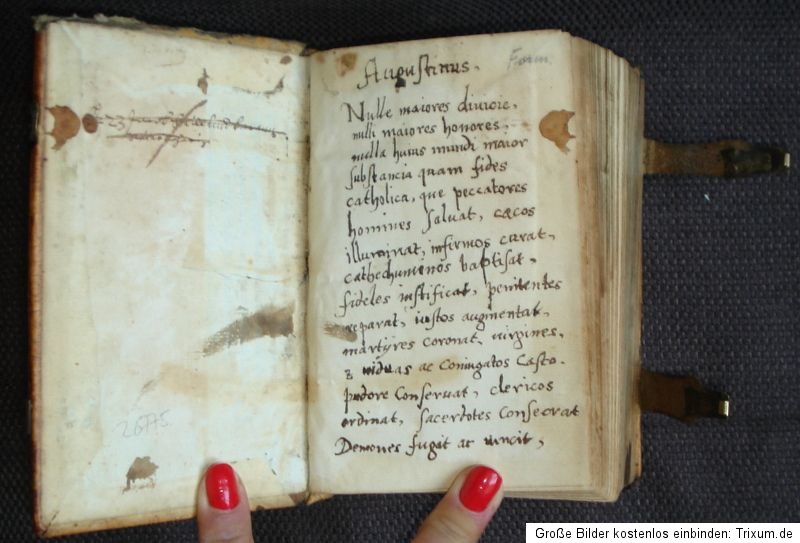 Augustinus.
Form
Nulle maiores divicie,
nulli maiores honores,
nulla huius mundi maior
substancia quam fides
catholica, que peccatores
homines salvat, cæcos
illuminat, infirmos curat,
cathechumenos baptisat,
fideles iustificat, penitentes
reparat, iustos augmentat,
martyres coronat, virgines,
& viduas ac Coniugatos Casto
pudore Conservat, clericos
ordinat, sacerdotes Consecrat
Demones fugat ac vincit,
Große Bilder kostenlos einbinden: Trixum.de